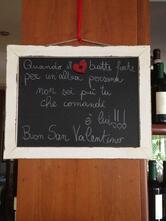 Quando il ❤ batte forte
per un'altra persona
non sei più tu
che comandi
è lui!!!
Buon San Valentino